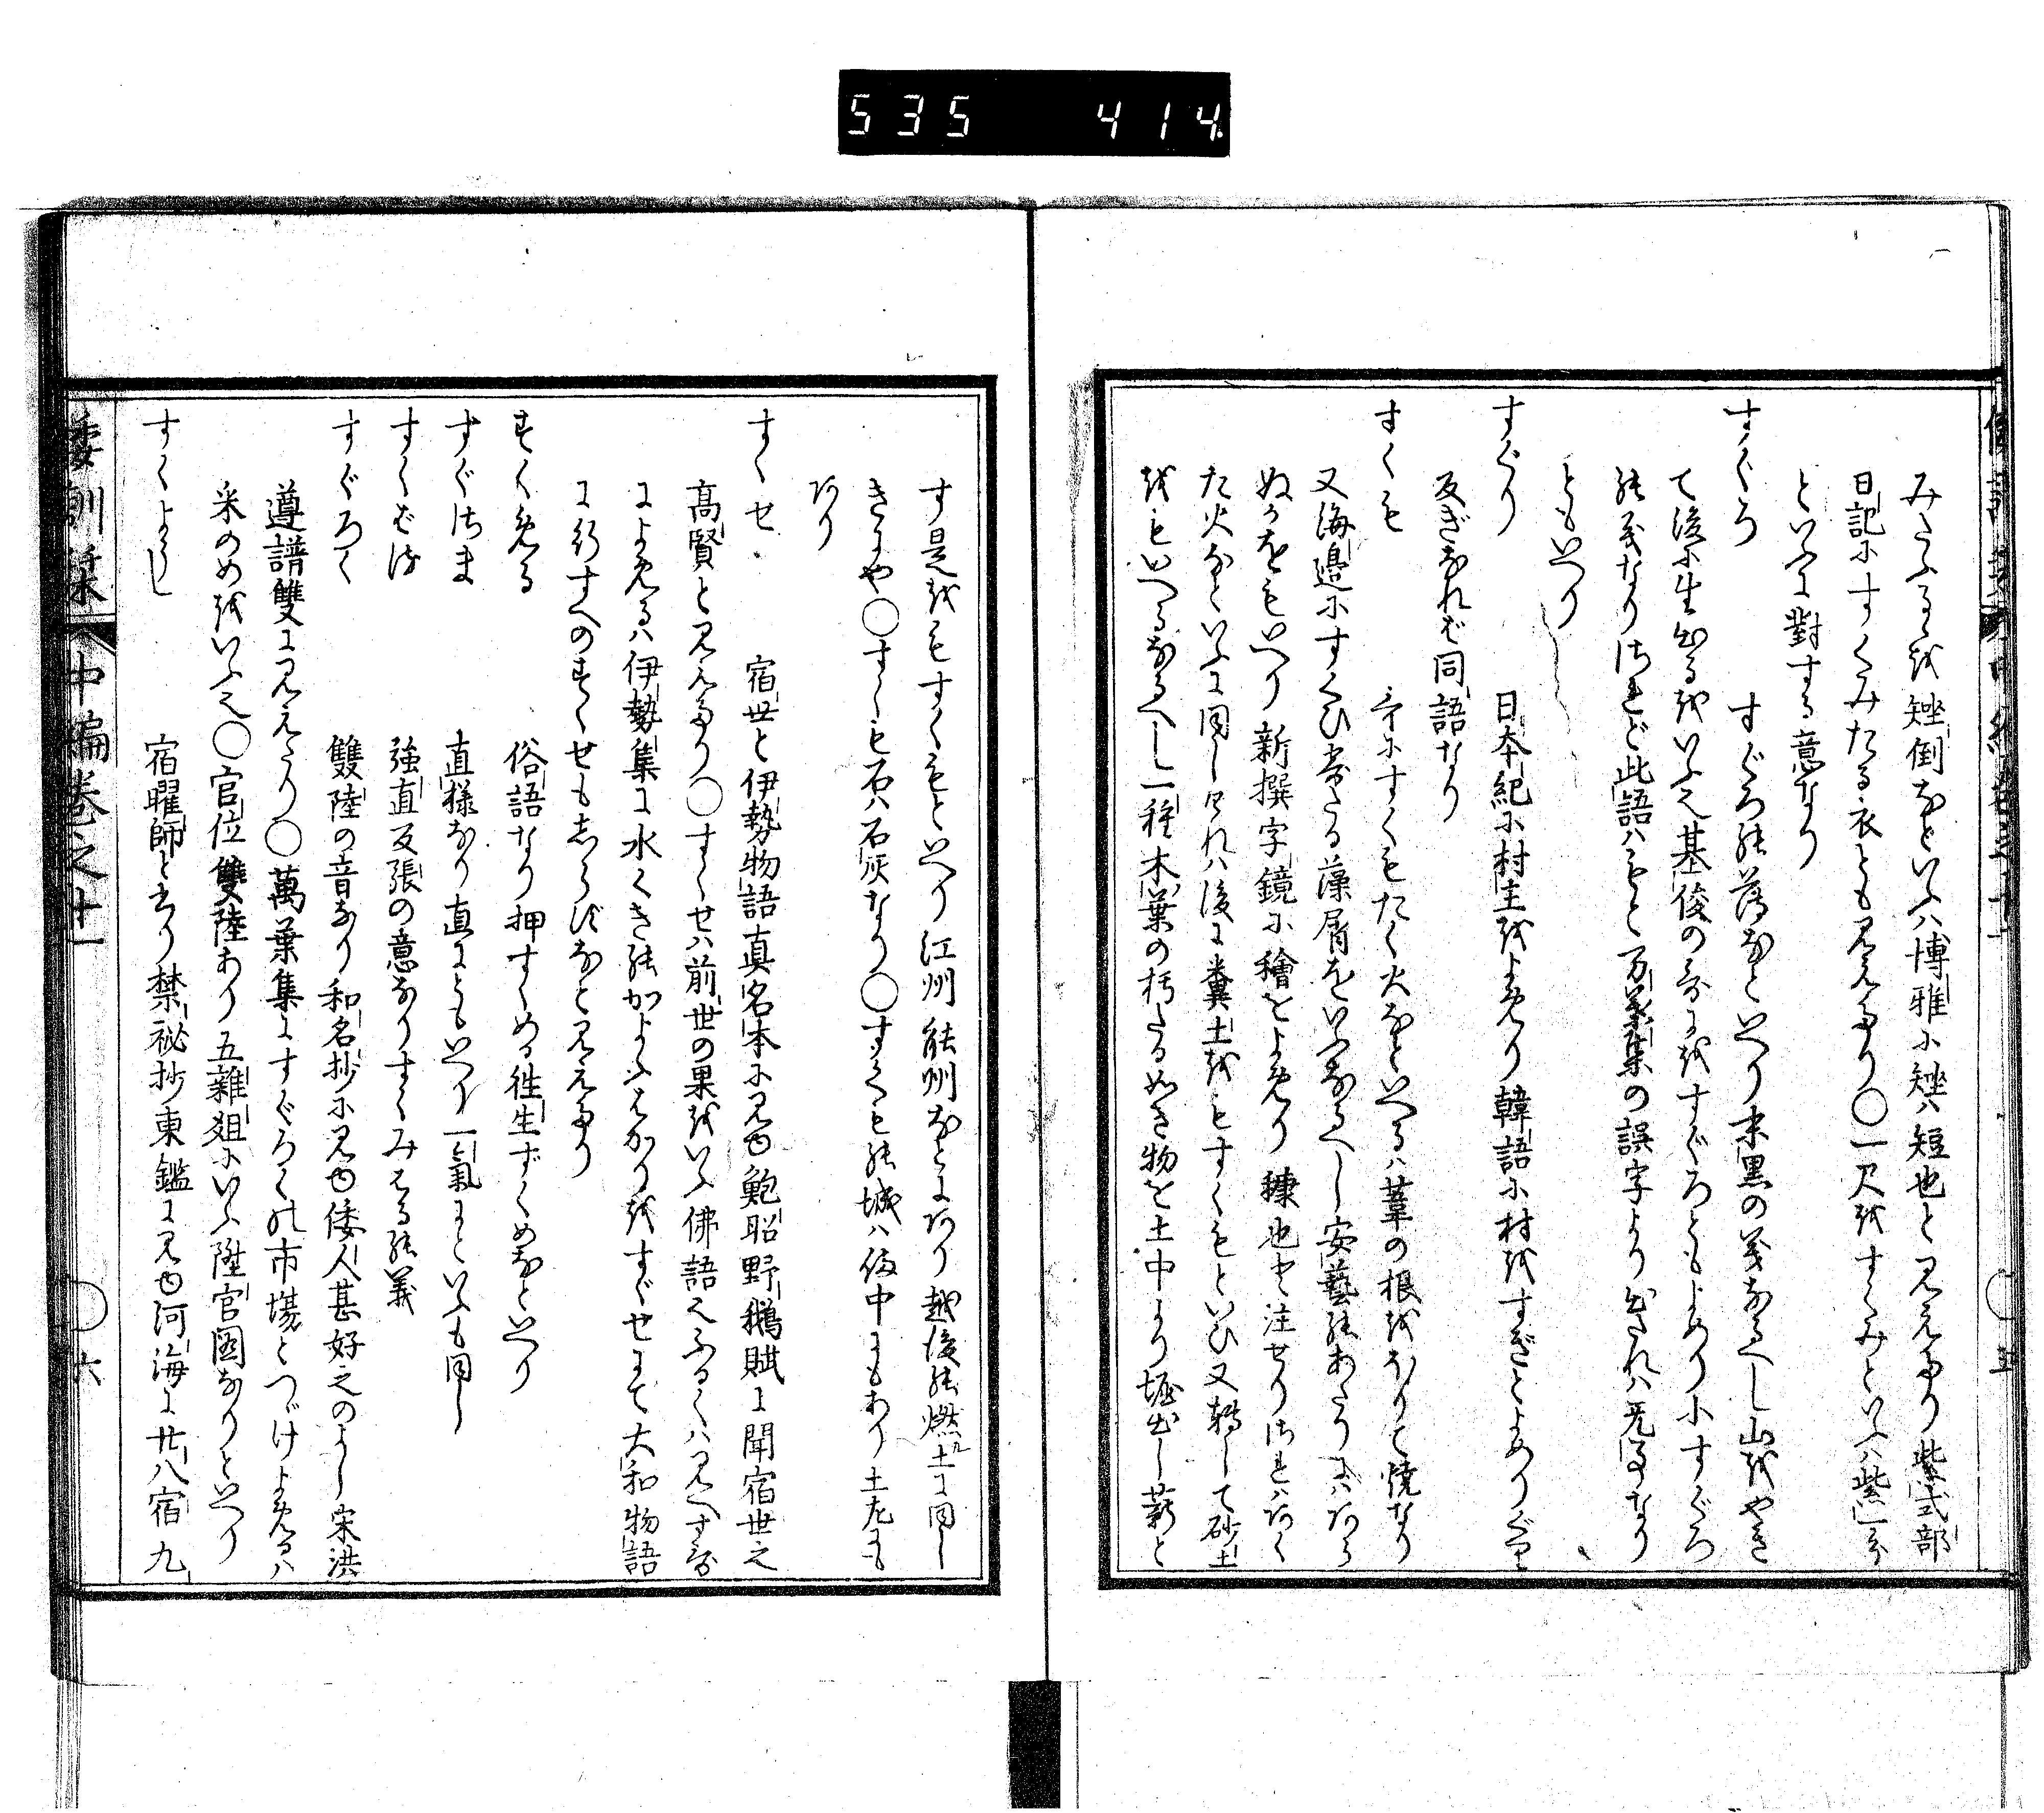 535 414
みたふるを矬倒なといふハ博雅に矬ハ短也と見えたり紫式部
日記にすくみたる衣とも見えたり〇一尺をすくみといふハ紫一分
といふに對する意なり
すぐろ すぐろの薄なといへり末黒の義なるへし山をやき
て後に生出るをいふ也基俊の哥にをすぐろともよめり小すぐろ
の義なりされど此語ハもと万葉集の誤字より出されハ
ともいへり
すぐり 日本紀に村主をよめり韓語に村をすぎとよめりぐり
反ぎなれば同語なり
すくも 哥にすくもたく火なといへるハ葦の根をほりて焼なり
又海邉にすくひ當たる藻屑をいふなるへし安藝のあたりにハある
ぬかをもいへり新撰字鏡に稽をよめり糠也と注せりされハあく
た火なといふに同しされハ後に糞土をもすくもといひ又轉して砂土
をもいへるなるへし一種木葉の朽たる如き物を土中より堀出し薪と
す是をもすくもといへり江州能州なとにあり越後の燃土に同し
きにや〇すくも石ハ石灰なり〇すくもの城ハ備中にもあり土左にも
あり
すくせ 宿世と伊勢物語真名本に見ゆ鮑昭野鵝賦に聞宿世之
高賢と見えたり〇すくせハ前世の果をいふ佛語也ふるくハ見へす哥
によめるハ伊勢集に水くきのかよふはかりをすぐせにて大和物語
に行すへのすくせもしらすなと見えたり
すくめる 俗語なり押すくめる徃生ずくめなといへり
すぐさま 直様なり直にともいへり一氣にといふも同し
すくばる 強直反張の意なりすくみはるの義
すぐろく 雙陸の音なり和名抄に見ゆ倭人甚好之のよし宋洪
遵譜雙に見えたり〇萬葉集にすぐろくの市場とつゞけよめるハ
采のめをいふ也〇官位雙陸あり五雜爼にいふ陞官圖なりといへり
すくようし 宿曜師と書り禁秘抄東鑑に見ゆ河海に廿八宿九
倭訓栞 中編巻之十一 〇六